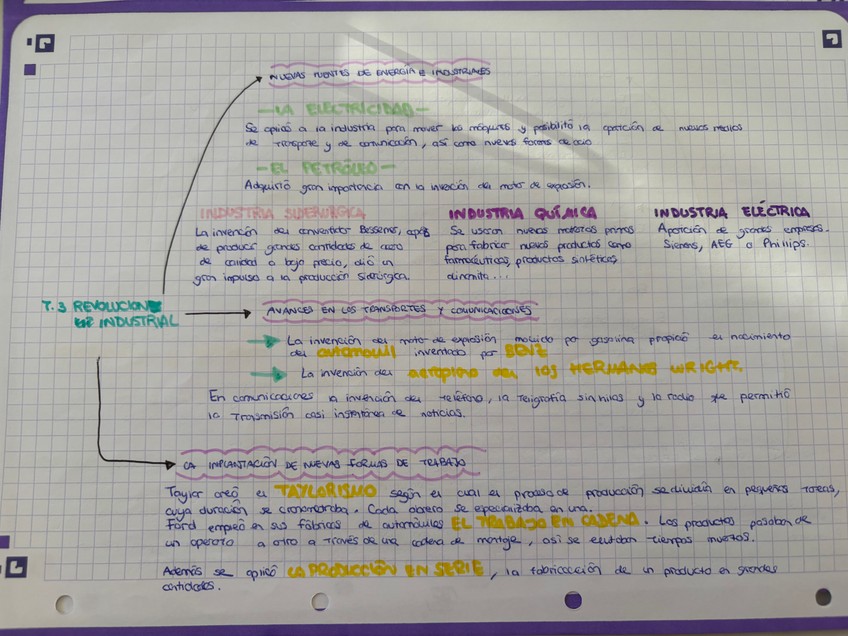 NUEVAS FUENTES DE ENERGÍA E INDUSTRIALES
-LA ELECTRICIDAD-
Se aplicó a la industria para mover las máquinas y posibilitó la aparición de nuevos medios
de transporte y de comunicación, así como nuevas formas de ocio
-EL PETRÓLEO-
Adquirió gran importancia con la invención del motor de explosión.
INDUSTRIA SIDERÚRGICA
La invención del convertidor Bessemer, capaz
de producir grandes cantidades de acero
de calidad a bajo precio, dió un
gran impulso a la producción siderúrgica.
INDUSTRIA QUÍMICA
Se usaron nuevas materias primas
para fabricar nuevos productos como
farmacéuticos, productos sintéticos
dinamita...
INDUSTRIA ELÉCTRICA
Aparición de grandes empresas.
Siemens, AEG o Phillips.
T.3 REVOLUCION
INDUSTRIAL
AVANCES EN LOS TRANSPORTES Y COMUNICACIONES
La invención del motor de explosión movido por gasolina propició el nacimiento
del automovil inventado por BENZ
La invención del aeroplano del los HERMANOS WRIGHT.
En comunicaciones la invención del teléfono, la telgrafía sin hilos y la radio que permitió
la transmisión casi instantánea de noticias.
LA IMPLANTACIÓN DE NUEVAS FORMAS DE TRABAJO
Taylor creó el TAYLORISMO según el cual el proceso de producción se dividía en pequeñas tareas,
cuya duración se cronometraba. Cada obrero se especializaba en una.
Ford empleó en sus fábricas de automóviles EL TRABAJO EN CADENA. Los productos pasaban de
un operario a otro a través de una cadena de montaje, así se evitaban tiempos muertos.
Además se aplicó LA PRODUCCIÓN EN SERIE, la fabricación de un producto en grandes
cantidades.